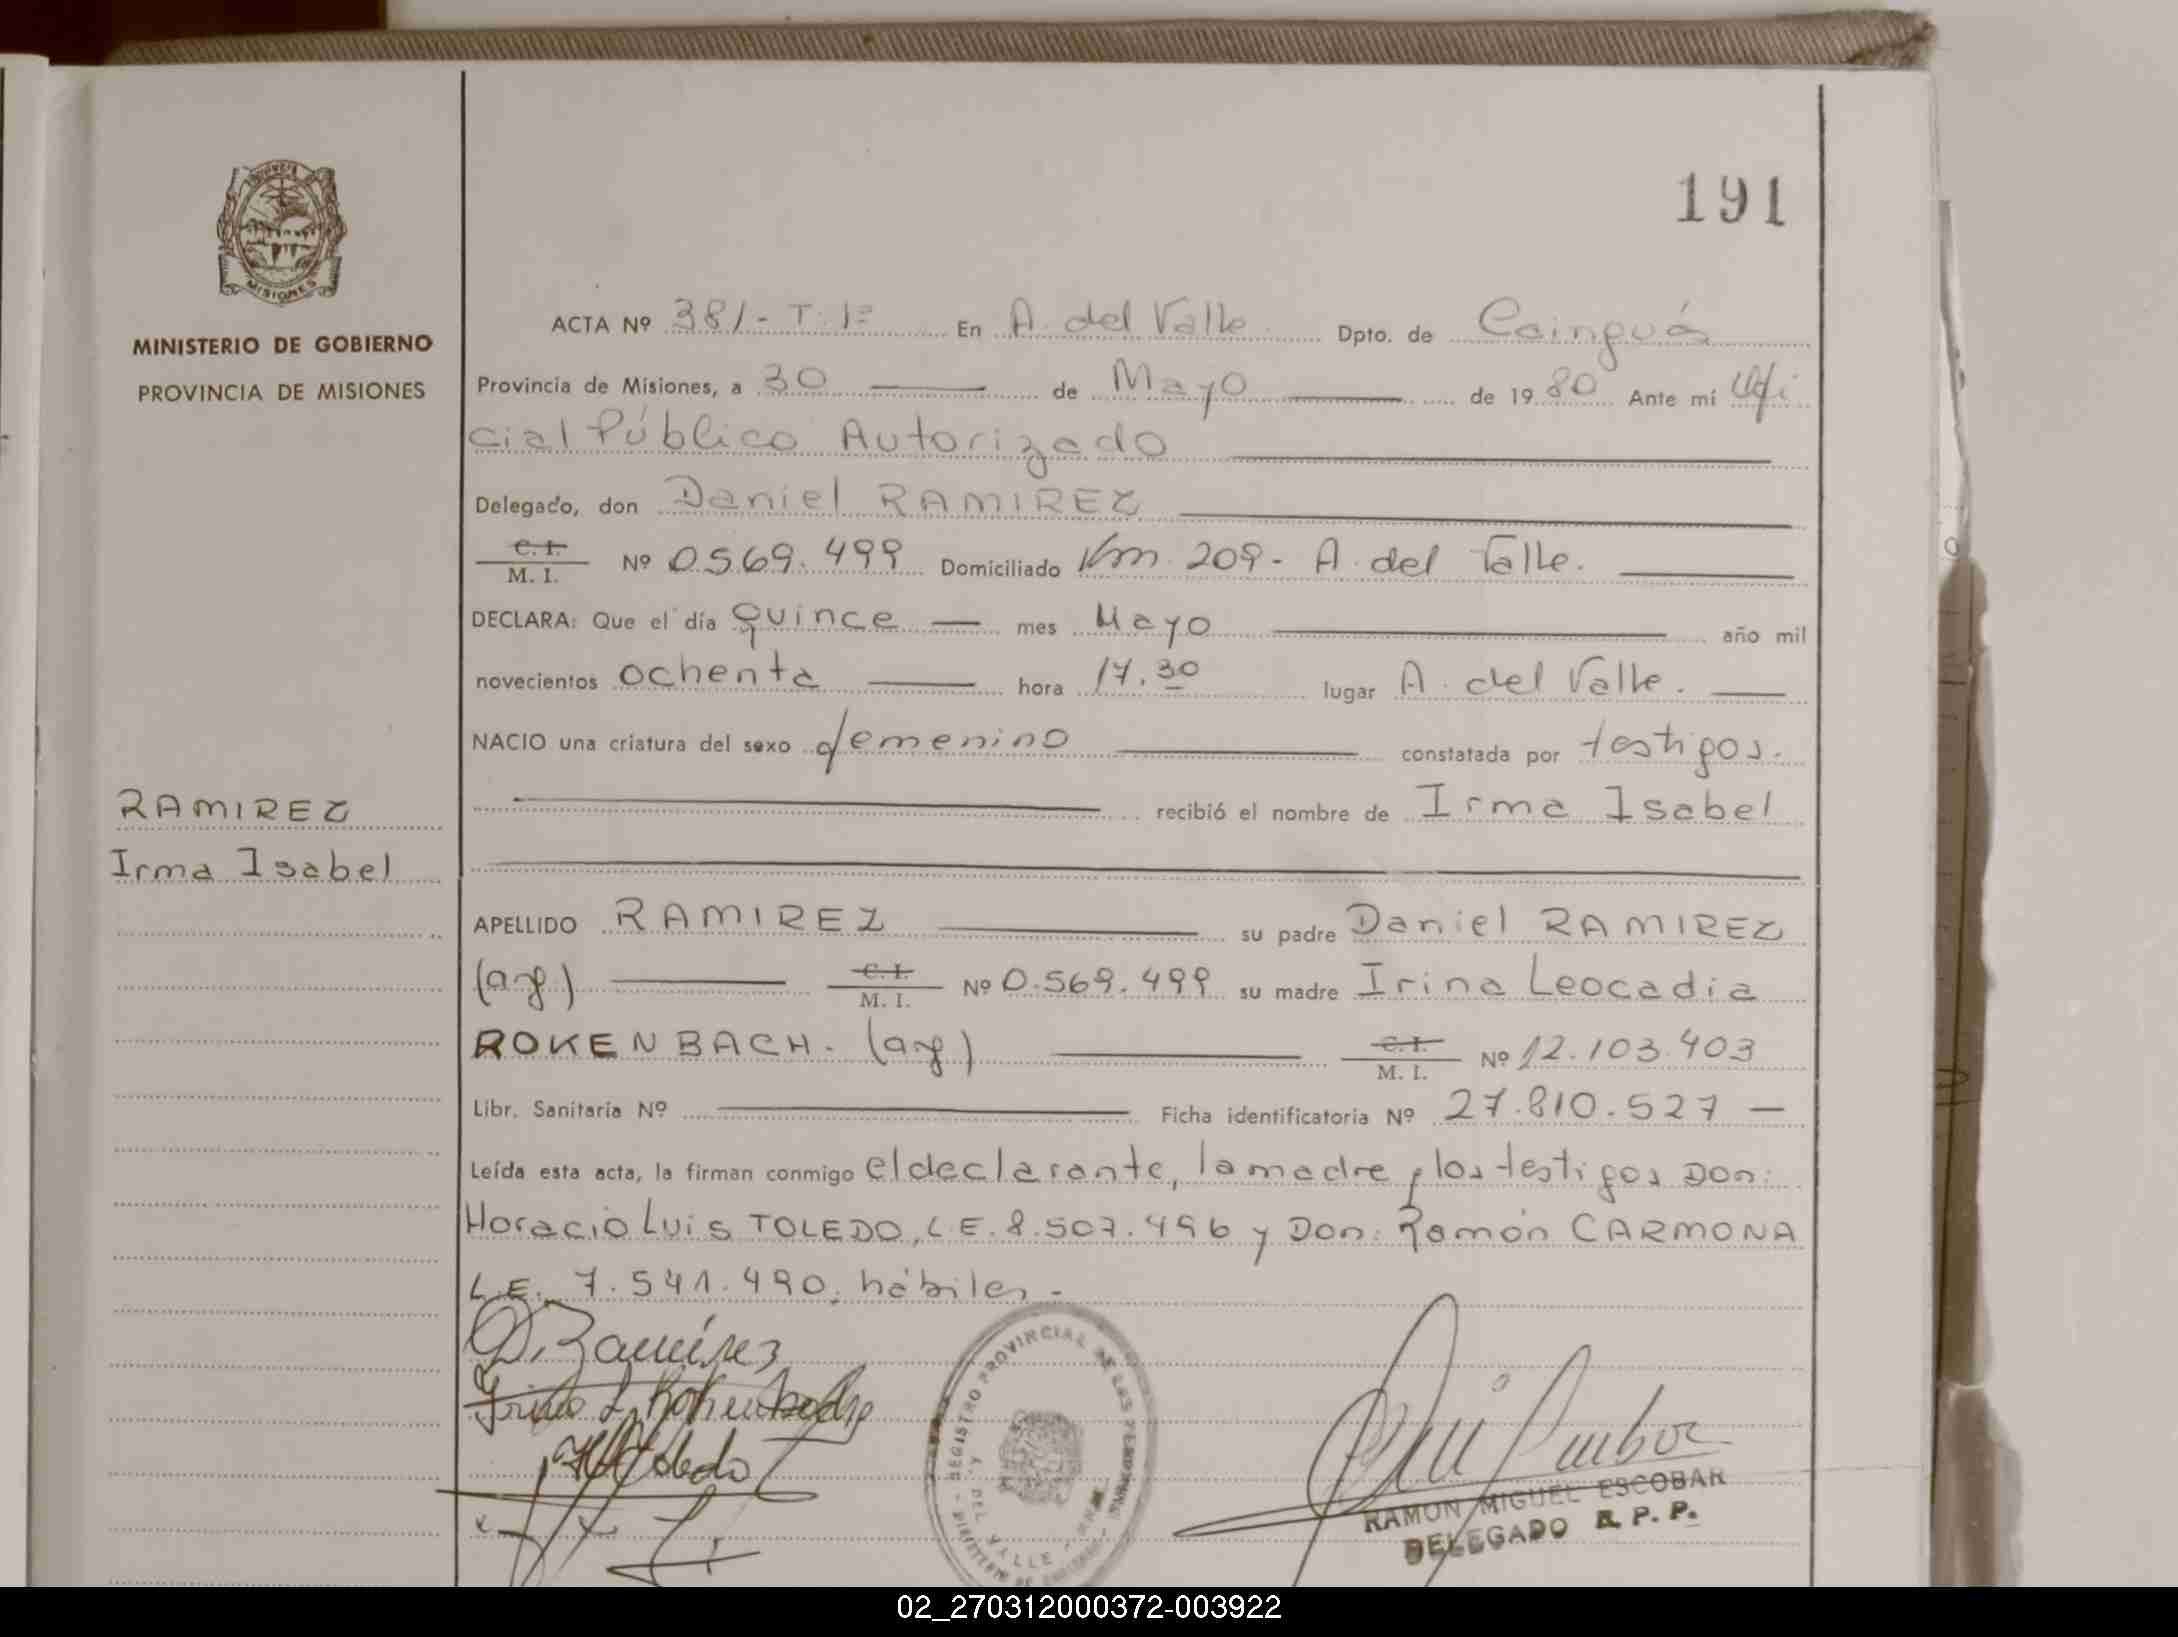 191
MISIONES
MINISTERIO DE GOBIERNO
PROVINCIA DE MISIONES
ACTA Nº 381-T.1º En A. del Valle Dpto. de Cainguás
Provincia de Misiones, a 30 de Mayo de 1980 Ante mí Ofi
cial Público Autorizado
Delegado, don Daniel RAMIREZ
C. I.
M. I. Nº 0.569.499 Domiciliado Km. 209- A. del Valle.
DECLARA: Que el día quince mes Mayo año mil
novecientos ochenta hora 17.30 lugar A. del Valle.
NACIO una criatura del sexo femenino constatada por testigos.
recibió el nombre de Irma Isabel
RAMIREZ
Irma Isabel
APELLIDO RAMIREZ su padre Daniel RAMIREZ
(arg) C. I. M. I. Nº 0.569.499 su madre Irina Leocadia
ROKENBACH. (arg) C. I. M. I. Nº 12.103.403
Libr. Sanitaria Nº Ficha identificatoria Nº 27.810.527 —
Leída esta acta, la firman conmigo el declarante, la madre y los testigos Don:
Horacio Luis TOLEDO, L.E. 8.507.496 y Don: Ramón CARMONA
L.E. 7.541.490. hábiles.-
D. Ramírez
Toledo
REGISTRO PROVINCIAL DE LAS PERSONAS
DEL VALLE
RAMON MIGUEL ESCOBAR
DELEGADO R. P. P.
02_270312000372-003922